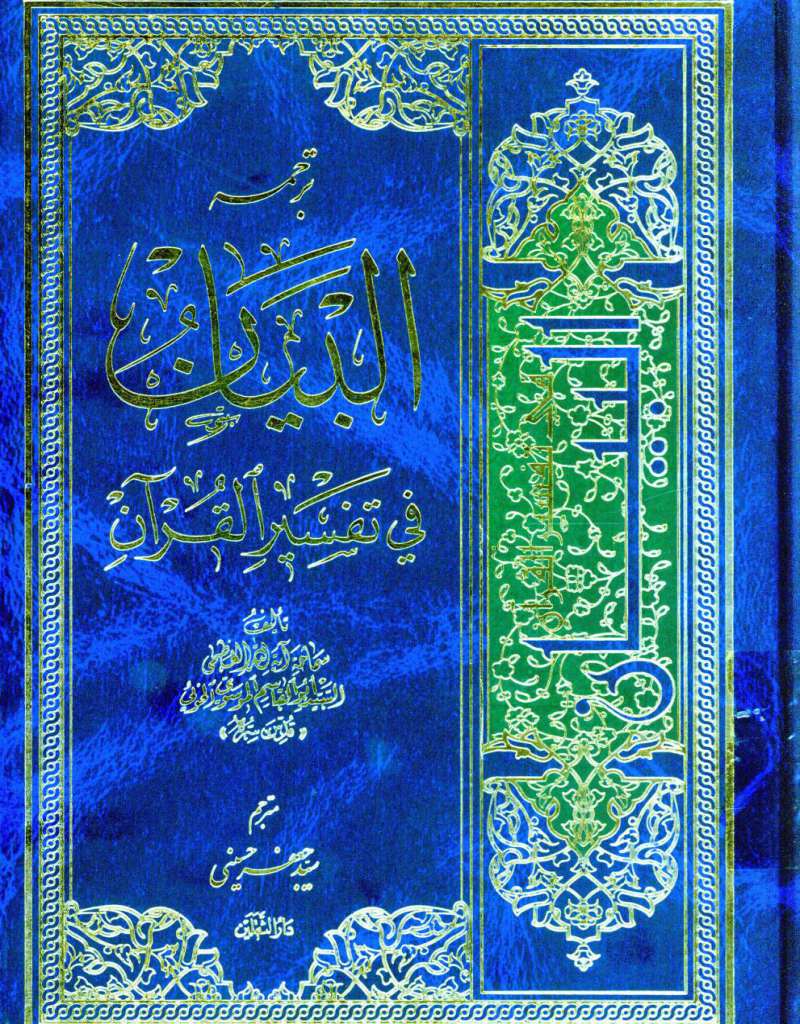 ترجمه
البَيَانُ
في تَفْسِيرِ ٱلقُرْآنِ
تأليف
سماحة آية الله العظمى
السيد أبو القاسم الموسوي الخوئي
« قدّس سرّه »
مترجم
سید جعفر حسینی
دار الثقلين
البيان
في تفسير القرآن